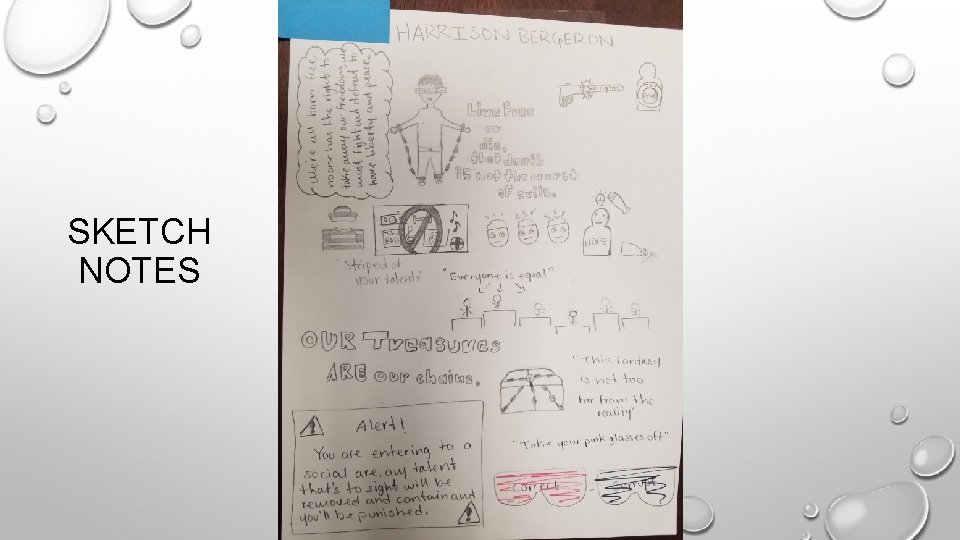 SKETCH
NOTES
HARRISON BERGERON
We're all born free,
noone has the right to
take away our freedom, we
must fight and defend to
have liberty and peace.
Live free
or
die,
that death
is not the worst
of evils.
HOPE
"Striped of
your talents"
"Everyone is equal"
OUR Treasures
ARE our chains.
"This fantasy
is not too
far from the
reality"
Alert!
You are entering to a
social are, any talent
that's to sight will be
removed and contain and
you'll be punished.
"Take your pink glasses off"